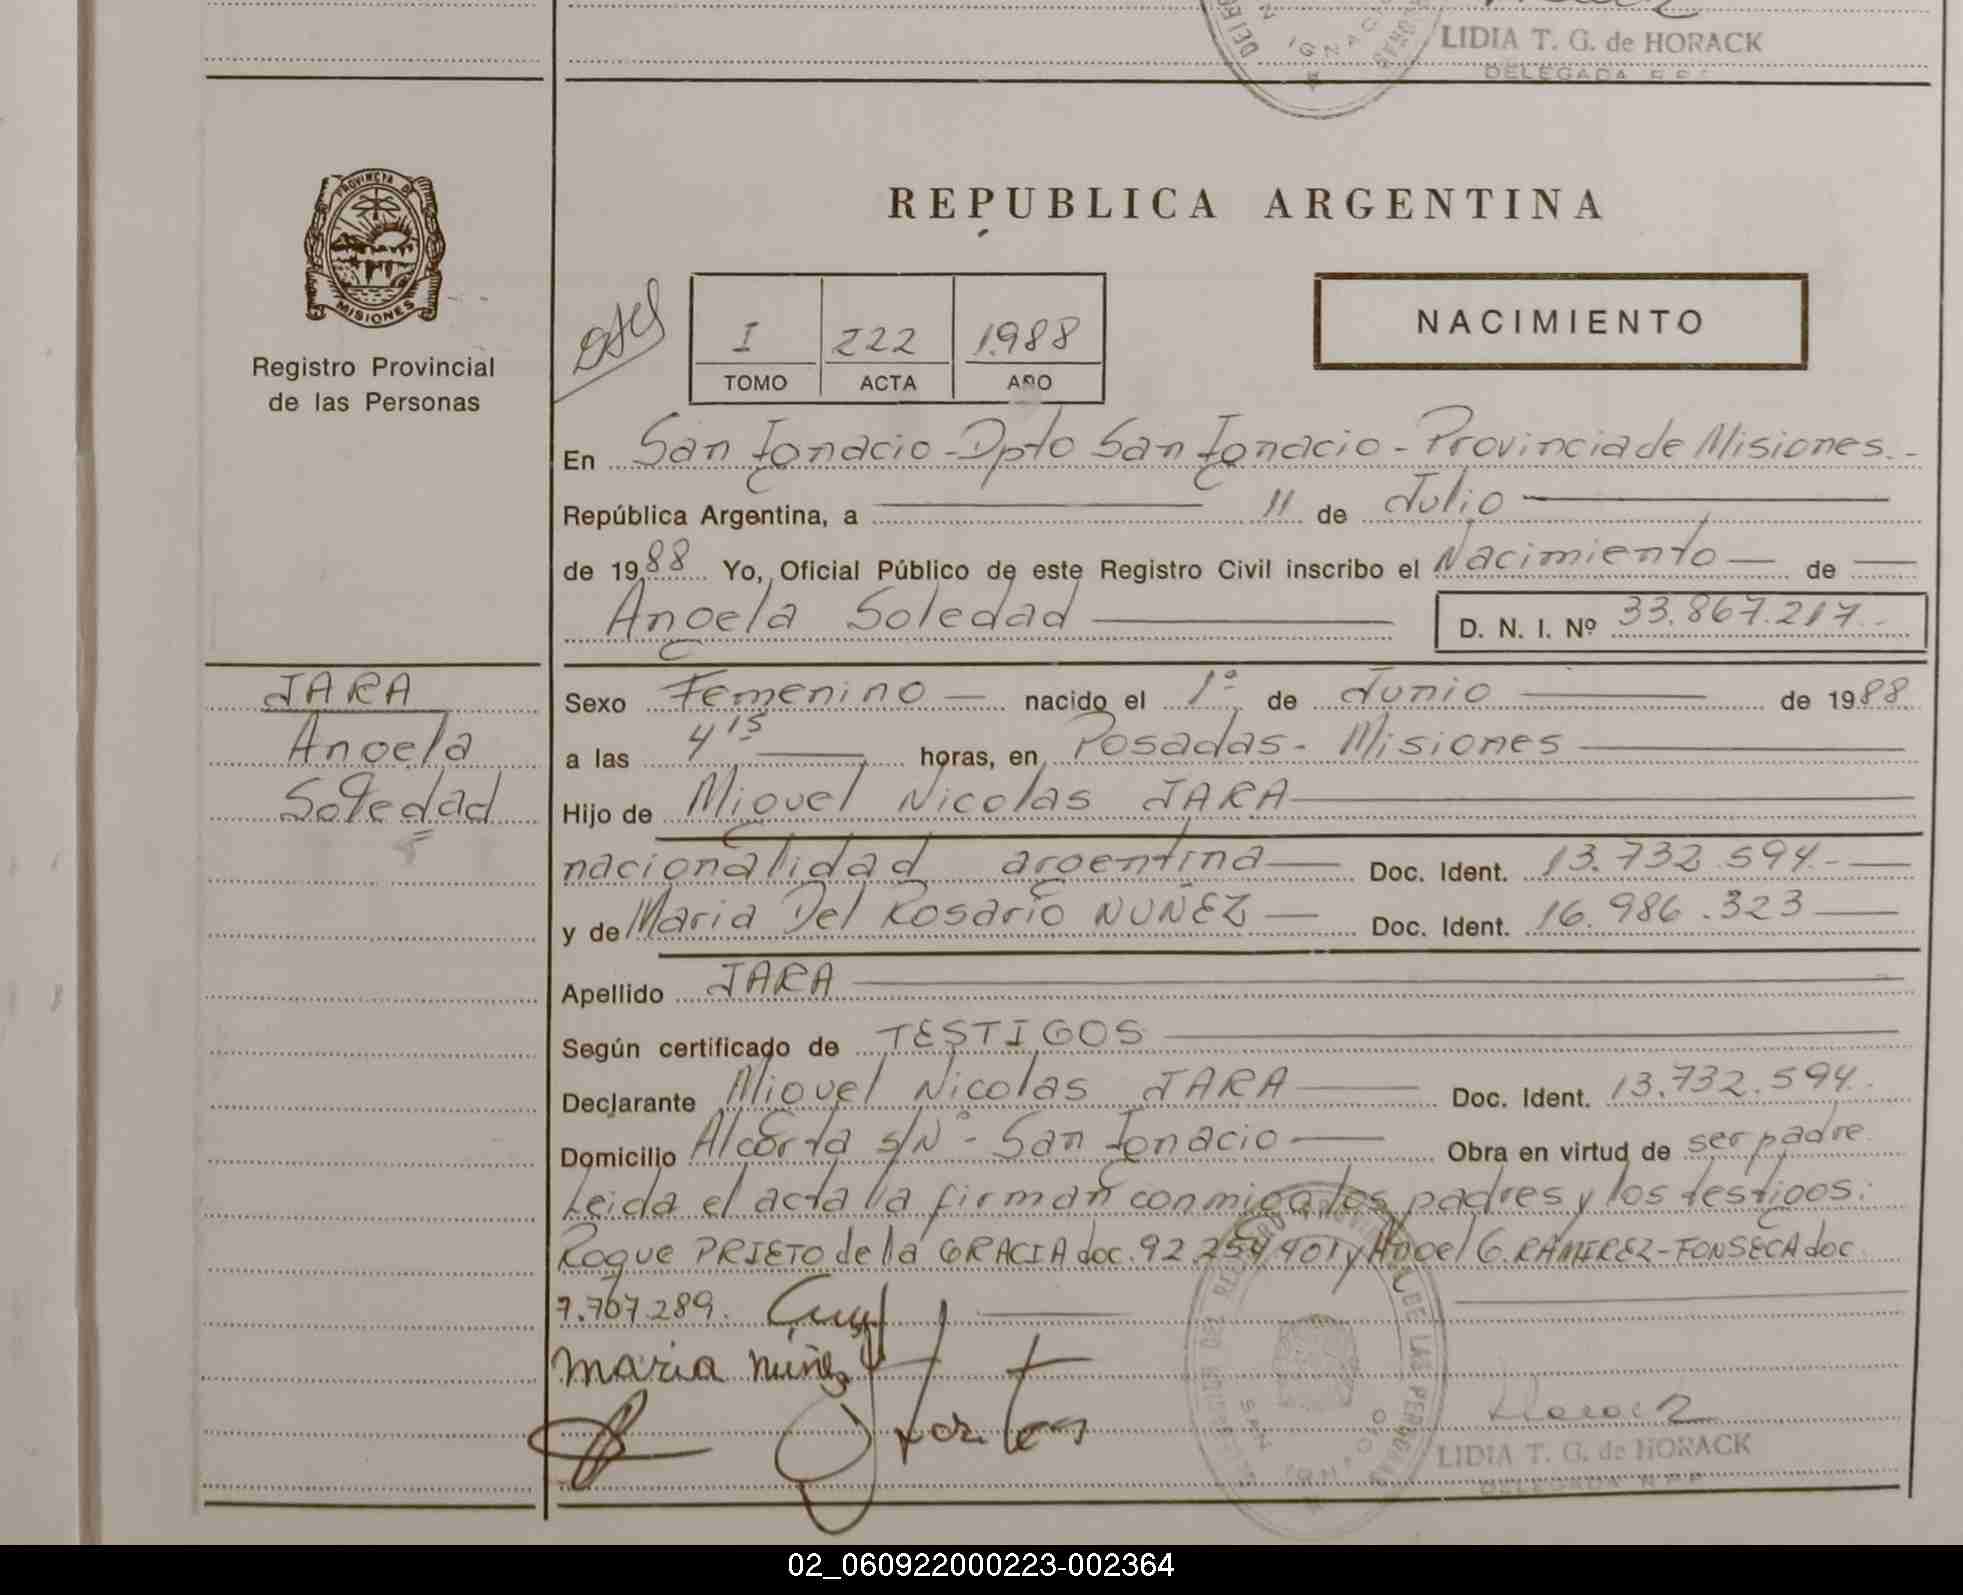 LIDIA T. G. de HORACK
DELEGADA
PROVINCIA DE
MISIONES
Registro Provincial
de las Personas
REPUBLICA ARGENTINA
I 222 1.988
TOMO ACTA AÑO
NACIMIENTO
En San Ignacio - Dpto San Ignacio - Provincia de Misiones.-
República Argentina, a 11 de Julio
de 1988 Yo, Oficial Público de este Registro Civil inscribo el Nacimiento de
Angela Soledad D. N. I. Nº 33.867.217.-
JARA
Angela
Soledad
Sexo Femenino nacido el 1º de Junio de 1988
a las 4 15 horas, en Posadas - Misiones
Hijo de Miguel Nicolas JARA
nacionalidad argentina Doc. Ident. 13.732.594.-
y de Maria Del Rosario NUÑEZ Doc. Ident. 16.986.323
Apellido JARA
Según certificado de TESTIGOS
Declarante Miguel Nicolas JARA Doc. Ident. 13.732.594.
Domicilio Alcorta s/Nº - San Ignacio Obra en virtud de ser padre
Leida el acta la firman conmigo los padres y los testigos:
Roque PRIETO de la GRACIA doc. 92.254.401 y Angel G. RAMIREZ-FONSECA doc.
7.707.289.
maria nuñez
LIDIA T. G. de HORACK
DELEGADA R.P.P.
02_060922000223-002364